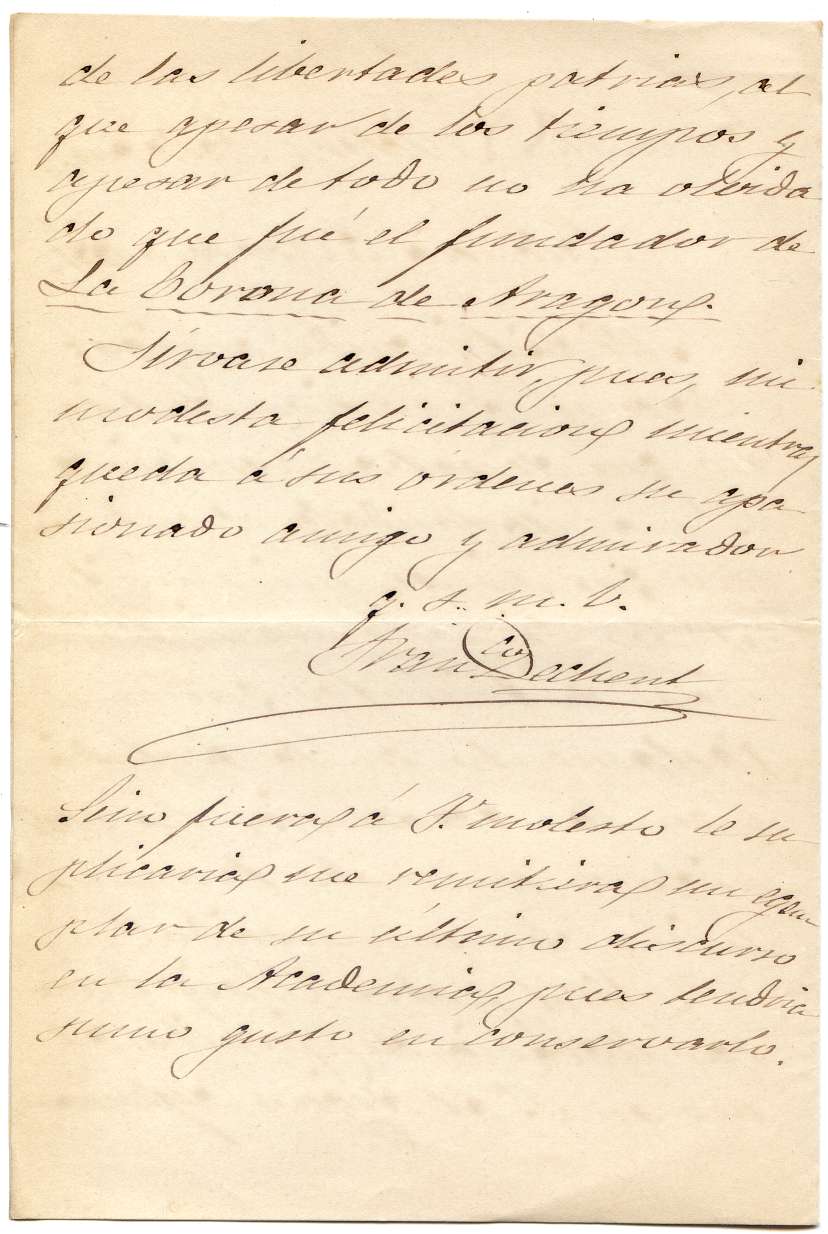 de las libertades patrias, al
que apesar de los tiempos y
apesar de todo no ha olvida
do que fué el fundador de
La Corona de Aragon.
Sírvase admitir, pues, mi
modesta felicitacion mientras
queda á sus órdenes su apa-
sionado amigo y admirador
q. s. m. b.
Fran co Pechent
Sino fuera á V. molesto le su
plicaria me remitiera un egem
plar de su último discurso
en la Academia, pues tendria
sumo gusto en conservarlo.